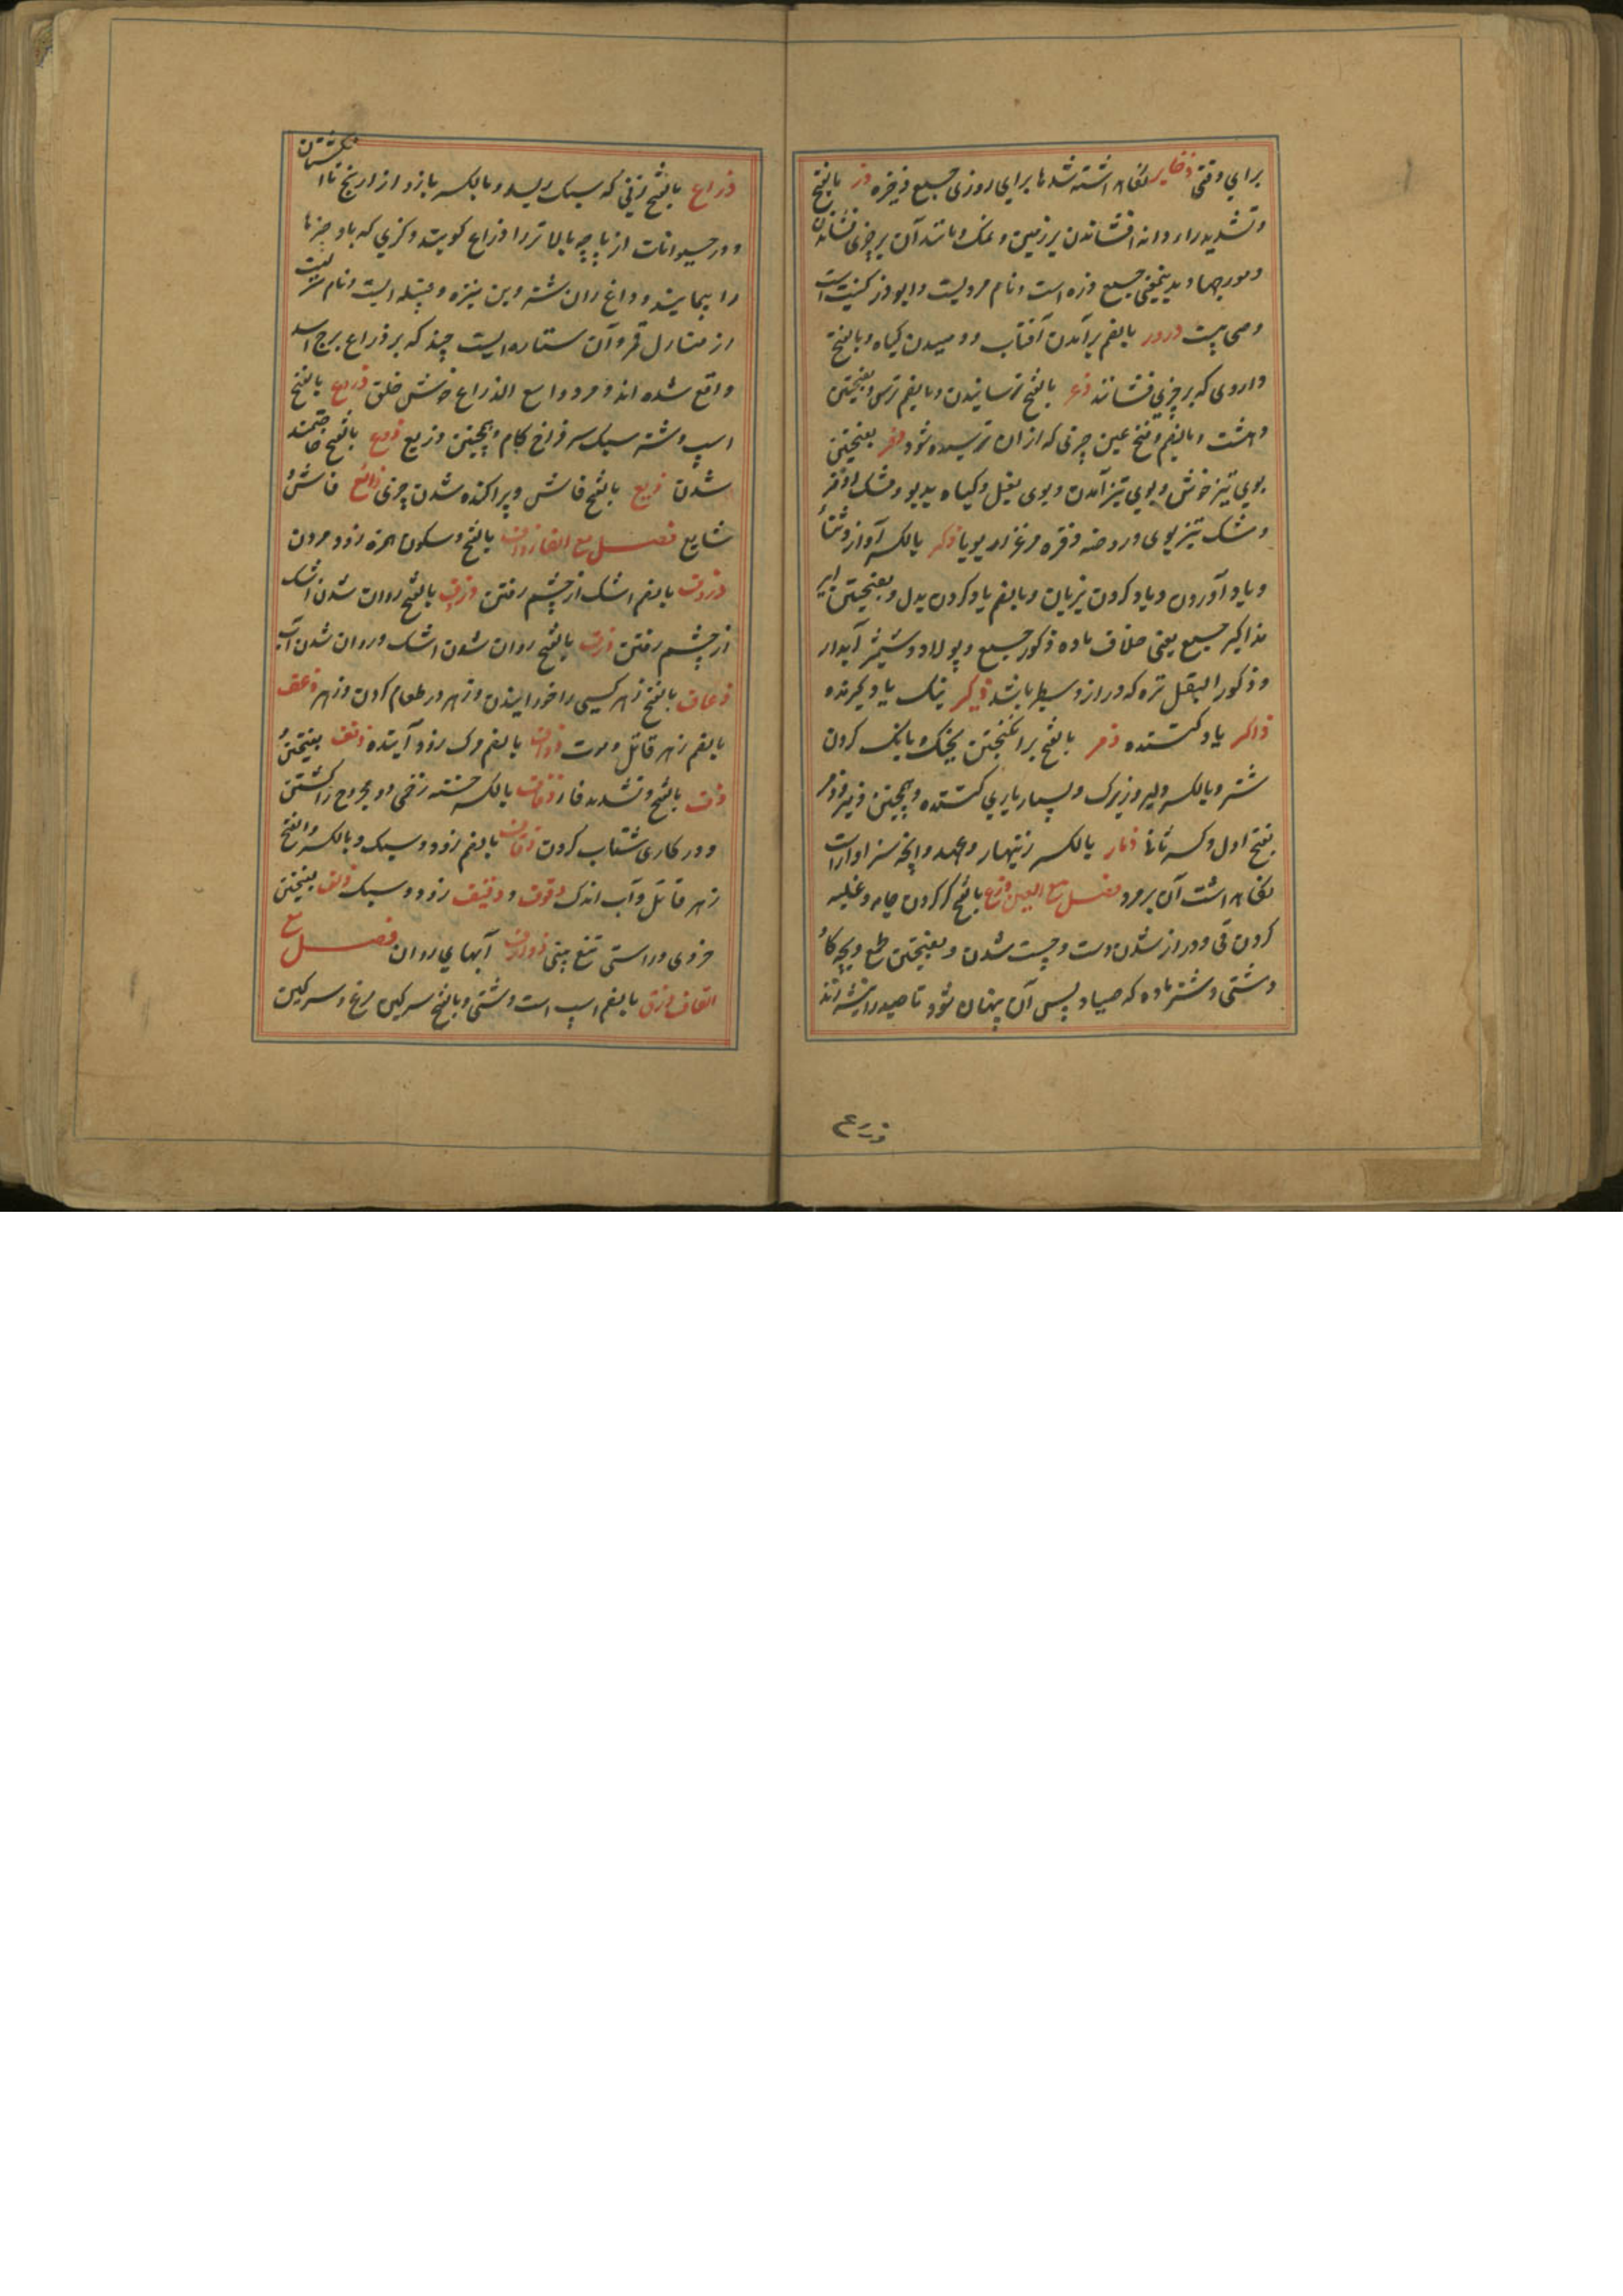 برای وقتی ذخایر نگاه داشته شدها برای روزی جمع ذخیره ذر بالفتح
و تشدید را دانه افشاندن بر زمین و نمک و مانند آن بر چیزی فشاندن
و مورچها و بدینمعنی جمع ذره است و نام مردیست و ابوذر کنیت است
و صحابیست ذرور بالضم برآمدن آفتاب و دمیدن گیاه و بالفتح
داروی که بر چیزی فشانند ذعر بالفتح ترسانیدن و بالضم ترس و بفتحتین
دهشت و بالضم و فتح عین چیزی که از ان ترسیده شود ذفر بفتحتین
بوی تیز خوش و بوی تیز آمدن و بوی بغل و گیاه بدبو و مشک اذفر
و مشک تیز بوی و روضه ذفره مرغزار بویا ذکر بالکسر آواز و ثنا
و یاد آوردن و یاد کردن بزبان و بالضم یاد کردن بدل و بفتحتین نر
مذاکیر جمع یعنی خلاف ماده ذکور جمع و پولاد و شمشیر آبدار
و ذکور البقل تره که دراز و سطبر باشد ذکیر نیک یاد گیرنده
ذاکر یاد کننده ذمر بالفتح برانگیختن بجنگ و بانگ کردن
شتر و بالکسر دلیر و زیرک و بسیار یاری کننده و همچنین ذمیر و ذمر
بفتح اول و کسر ثانی ذمار بالکسر زینهار و عهد و آنچه سزاوار است
نگاه داشت آن بر مرد فصل مع العین ذرع بالفتح گز کردن جامه و غلبه
کردن قی و دراز شدن دست و چست شدن و بفتحتین طمع و بچه گاو
دشتی و شتر ماده که صیاد پس آن پنهان شود تا صید را
ذرع
ذراع بالفتح زنی که سبک ریسد و بالکسر بازو از ارنج تا انگشتان
و در حیوانات از پاچه بالاتر را ذراع گویند و گزی که باو چیزها
را پیمایند و داغ ران شتر و بن نیزه و قبیله ایست و نام منزلیست
از منازل قمر و آن ستاره ایست چند که بر ذراع برج اسد
واقع شده اند و مرد واسع الذراع خوش خلق ذریع بالفتح
اسپ و شتر سبک سر فراخ گام و همچنین ذریع ذرع بالفتح
شدن ذیع بالفتح فاش و پراکنده شدن چیزی ذائع فاش و
شایع فصل مع الفا ذواف بالفتح و سکون همزه زود مردن
ذروف بالضم اشک از چشم رفتن ذریف بالفتح روان شدن اشک
از چشم رفتن ذرف بالفتح روان شدن اشک و روان شدن آب
ذعاف بالفتح زهر کسی را خورانیدن و زهر در طعام کردن و زهر ذعف
بالضم زهر قاتل و موت ذواف بالضم مرگ زود آینده ذفف بفتحتین و
ذف بالفتح و تشدید فا و ذفاف بالکسر خسته زخمی و مجروح را کشتن
و در کاری شتاب کردن ذفاف بالضم زود و سبک و بالکسر و الفتح
زهر قاتل و آب اندک ذفوف و ذفیف زود و سبک ذلف بفتحتین
خردی و راستی تیغ بینی ذوارف آبهای روان فصل مع
القاف ذرق بالضم اسپ است دشتی و بالفتح سرگین مرغ و سرگین